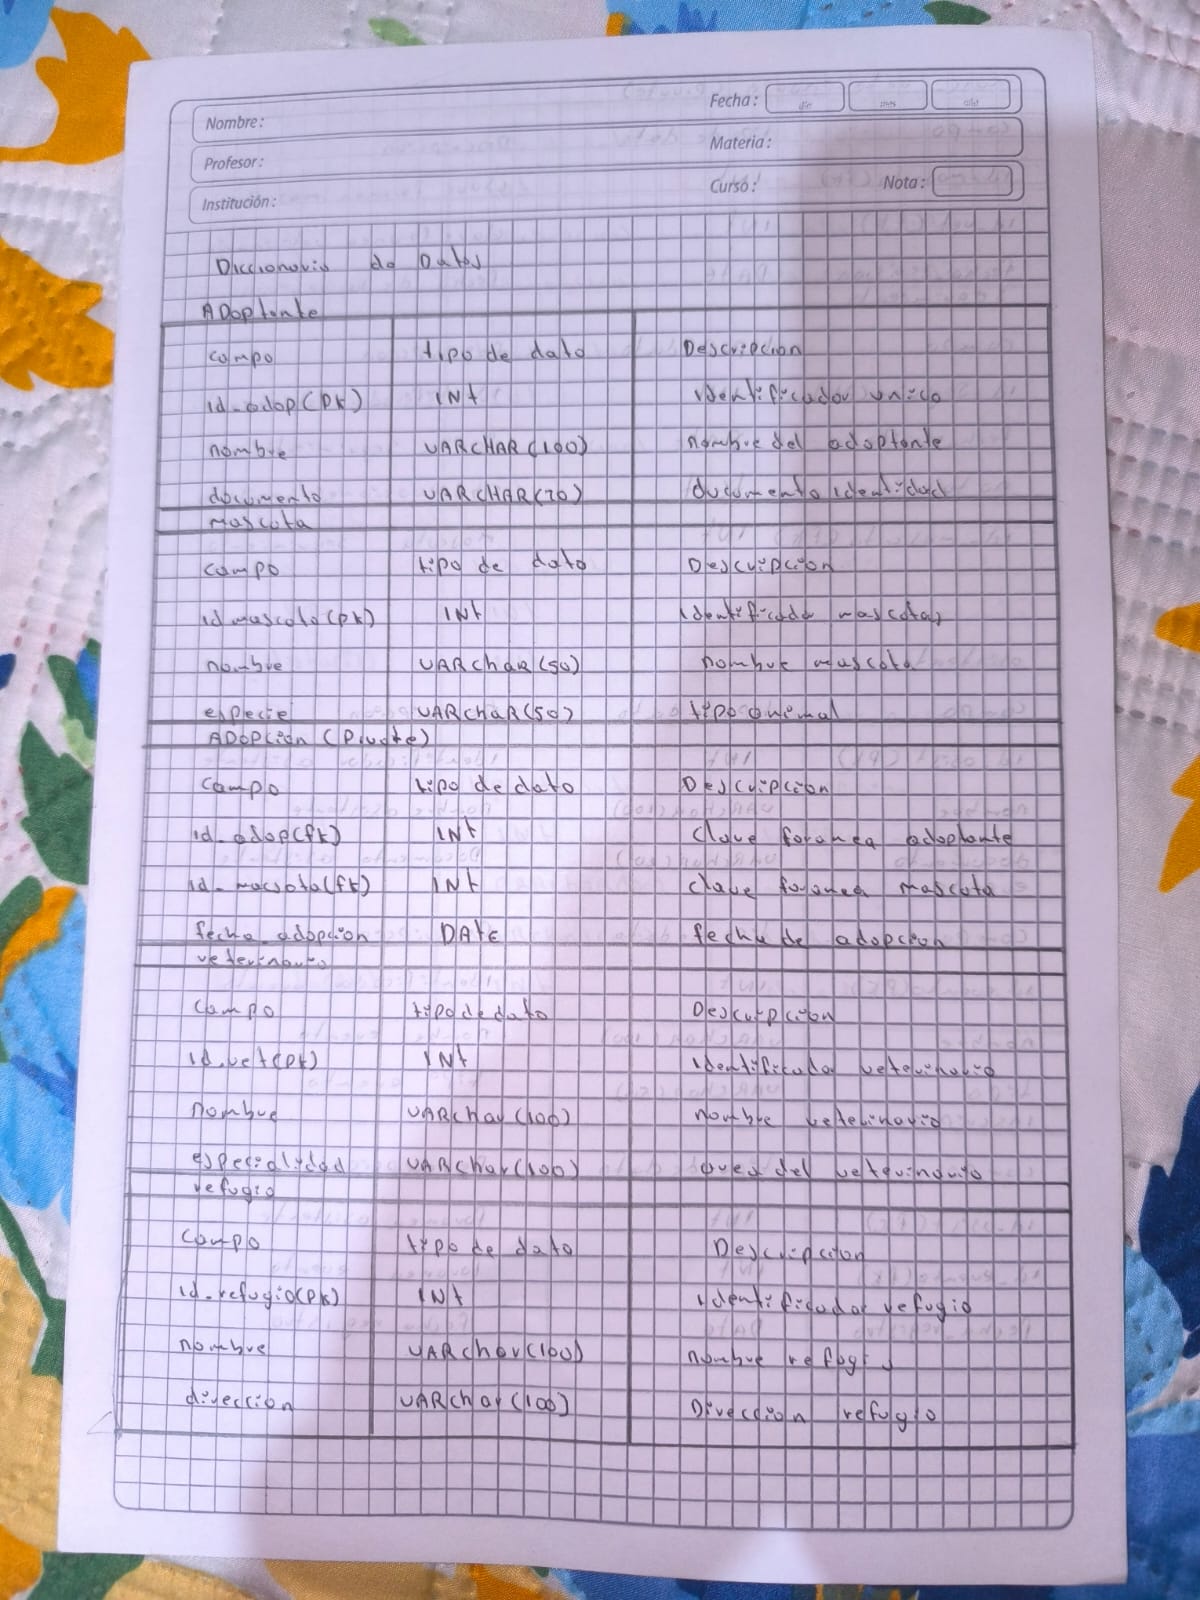 Nombre:
Fecha: día mes año
Profesor:
Materia:
Institución:
Curso: Nota:
Diccionario de Datos
ADoptante
campo tipo de dato Descripcion
id_adop(PK) INt identificador unico
nombre VARCHAR(100) nombre del adoptante
documento VARCHAR(20) documento identidad
mascota
campo tipo de dato Descripcion
id mascota(pk) INt identificador mascotas
nombre VARchar(50) nombre mascota
especie VARchar(50) tipo animal
ADopcion (Puente)
campo tipo de dato Descripcion
id_adop(fk) INt clave foranea adoptante
id_macsota(fk) INt clave foranea mascota
fecha_adopcion DAtE fecha de adopcion
veterinario
campo tipo de dato Descripcion
id_vet(pk) INt identificador veterinario
nombre VARchar(100) nombre veterinario
especialidad VARchar(100) area del veterinario
refugio
campo tipo de dato Descripcion
id_refugio(PK) INt identificador refugio
nombre VARchar(100) nombre refugio
direccion VARchar(100) Direccion refugio